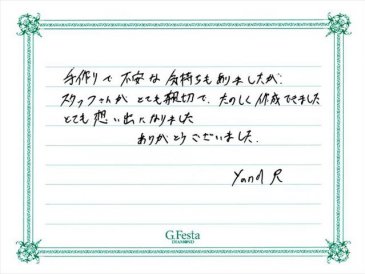 手作りで不安な気持ちもありましたが、
スタッフさんが とても親切で、たのしく作成できました
とても想い出になりました
ありがとうございました。
Y and R
G.Festa
DIAMOND